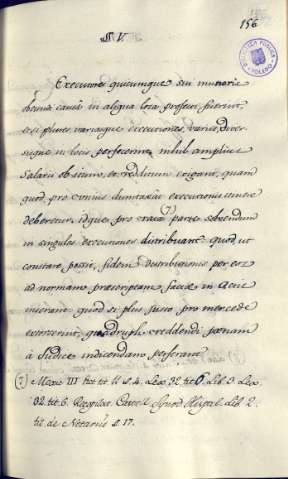 156
BIBLIOTECA PUBLICA TOLEDO
N. V.
Executores quicumque sui muneris
obeundi causâ in aliqua loca profecti fuerint,
etsi plures variasque executiones, variis, diver-
sisque in locis perfecerint, nihil amplius
salarii obituro, et redditum exigant, quam
quod pro unius dumtaxat executionis itinere
deberetur: idque pro rata (7) parte solvendum
in singulas executiones distribuant: quod, ut
constare possit, fidem distributionis per
ad normam praescriptam factae in actis
inserant: quod si plus justo pro mercede
extorserint, quadrupli reddendi poenam
à Judice indicendam perferant.
(7) Mexic. III tit. II §. 4. Lex 32. tit. 6. Lib. 3. Lex
32. tit. 6. Recopilac. Castell. Synod. Hispal. Lib. 2.
tit. de Notariis §. 17.